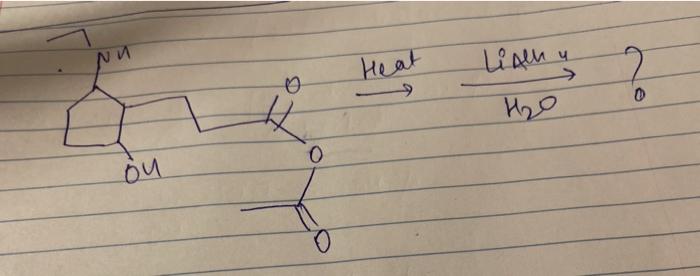 NH
O
Heat
LiAlH4
H2O
?
O
OH
O